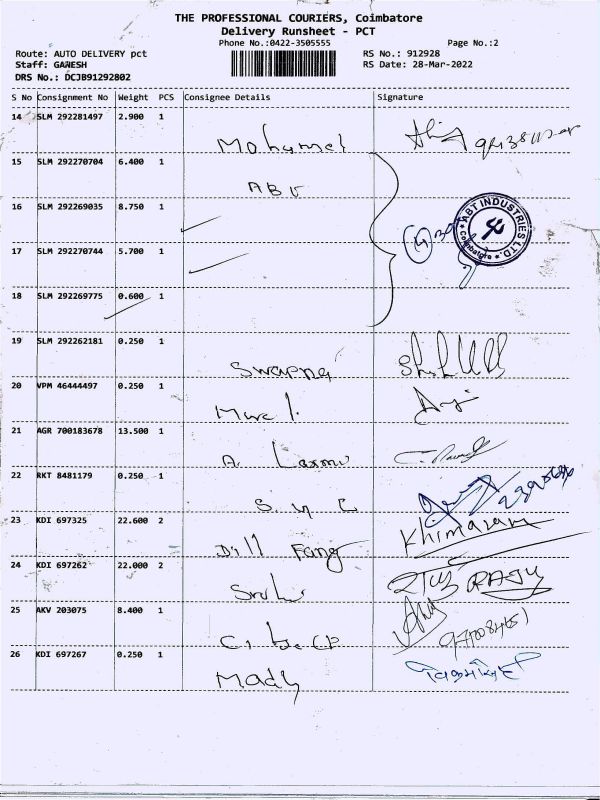 THE PROFESSIONAL COURIERS, Coimbatore
Delivery Runsheet - PCT
Phone No.:0422-3505555 Page No.:2
Route: AUTO DELIVERY pct RS No.: 912928
Staff: GANESH RS Date: 28-Mar-2022
DRS No.: DCJB91292802
S No Consignment No Weight PCS Consignee Details Signature
14 SLM 292281497 2.900 1
Mohamed
15 SLM 292270704 6.400 1
ABU
16 SLM 292269035 8.750 1
ABT INDUSTRIES LTD.
Coimbatore
17 SLM 292270744 5.700 1
18 SLM 292269775 0.600 1
19 SLM 292262181 0.250 1
Swapna
20 VPM 46444497 0.250 1
21 AGR 700183678 13.500 1
A Laxmi
22 RKT 8481179 0.250 1
23 KDI 697325 22.600 2 Khimaram
Dill Fang
24 KDI 697262 22.000 2
RAJU
25 AKV 203075 8.400 1
26 KDI 697267 0.250 1
Mady